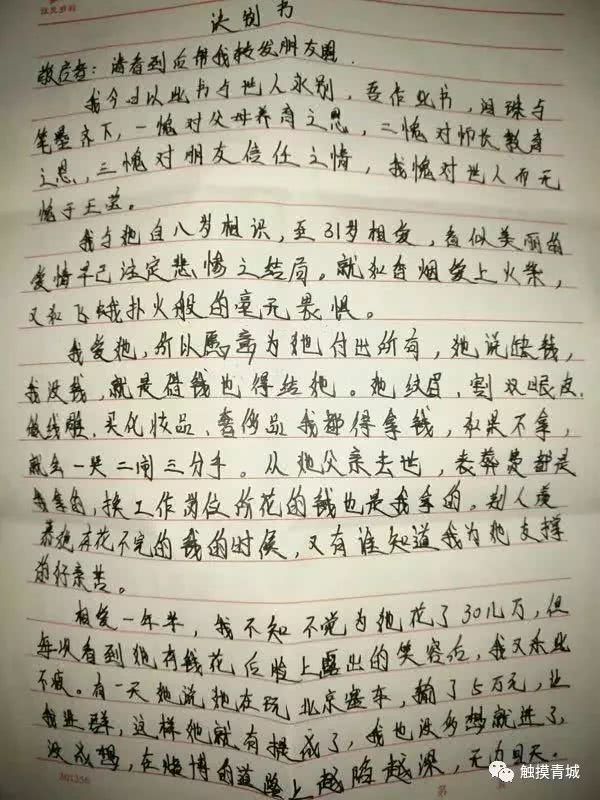 诀别书
敬启者：请看到后帮我转发朋友圈.
我今日以此书与世人永别，吾作此书，泪珠与
笔墨齐下，一愧对父母养育之恩，二愧对师长教育
之恩，三愧对朋友信任之情，我愧对世人而无
愧于王莹。
我与她自八岁相识，至31岁相爱，看似美丽的
爱情早已注定悲惨之结局。就似香烟爱上火柴，
又似飞蛾扑火般的毫无畏惧。
我爱她，所以愿意为她付出所有，她说缺钱，
我没钱，就是借钱也得给她。她纹眉、割双眼皮、
做线雕、买化妆品、奢侈品我都得拿钱，如果不拿，
就会一哭二闹三分手。从她父亲去世，丧葬费都是
我拿的，换工作岗位所花的钱也是我拿的。别人羡
慕她有花不完的钱的时候，又有谁知道我为她支撑
的何亲苦。
相爱一年半，我不知不觉为她花了30几万，但
每次看到她有钱花后脸上露出的笑容后，我又乐此
不疲。有一天她说她在玩北京赛车，输了5万元，让
我进群，这样她就有提成了，我也没多想就进了，
没成想，在赌博的道路上越陷越深，无力回天.
201356
第
触摸青城